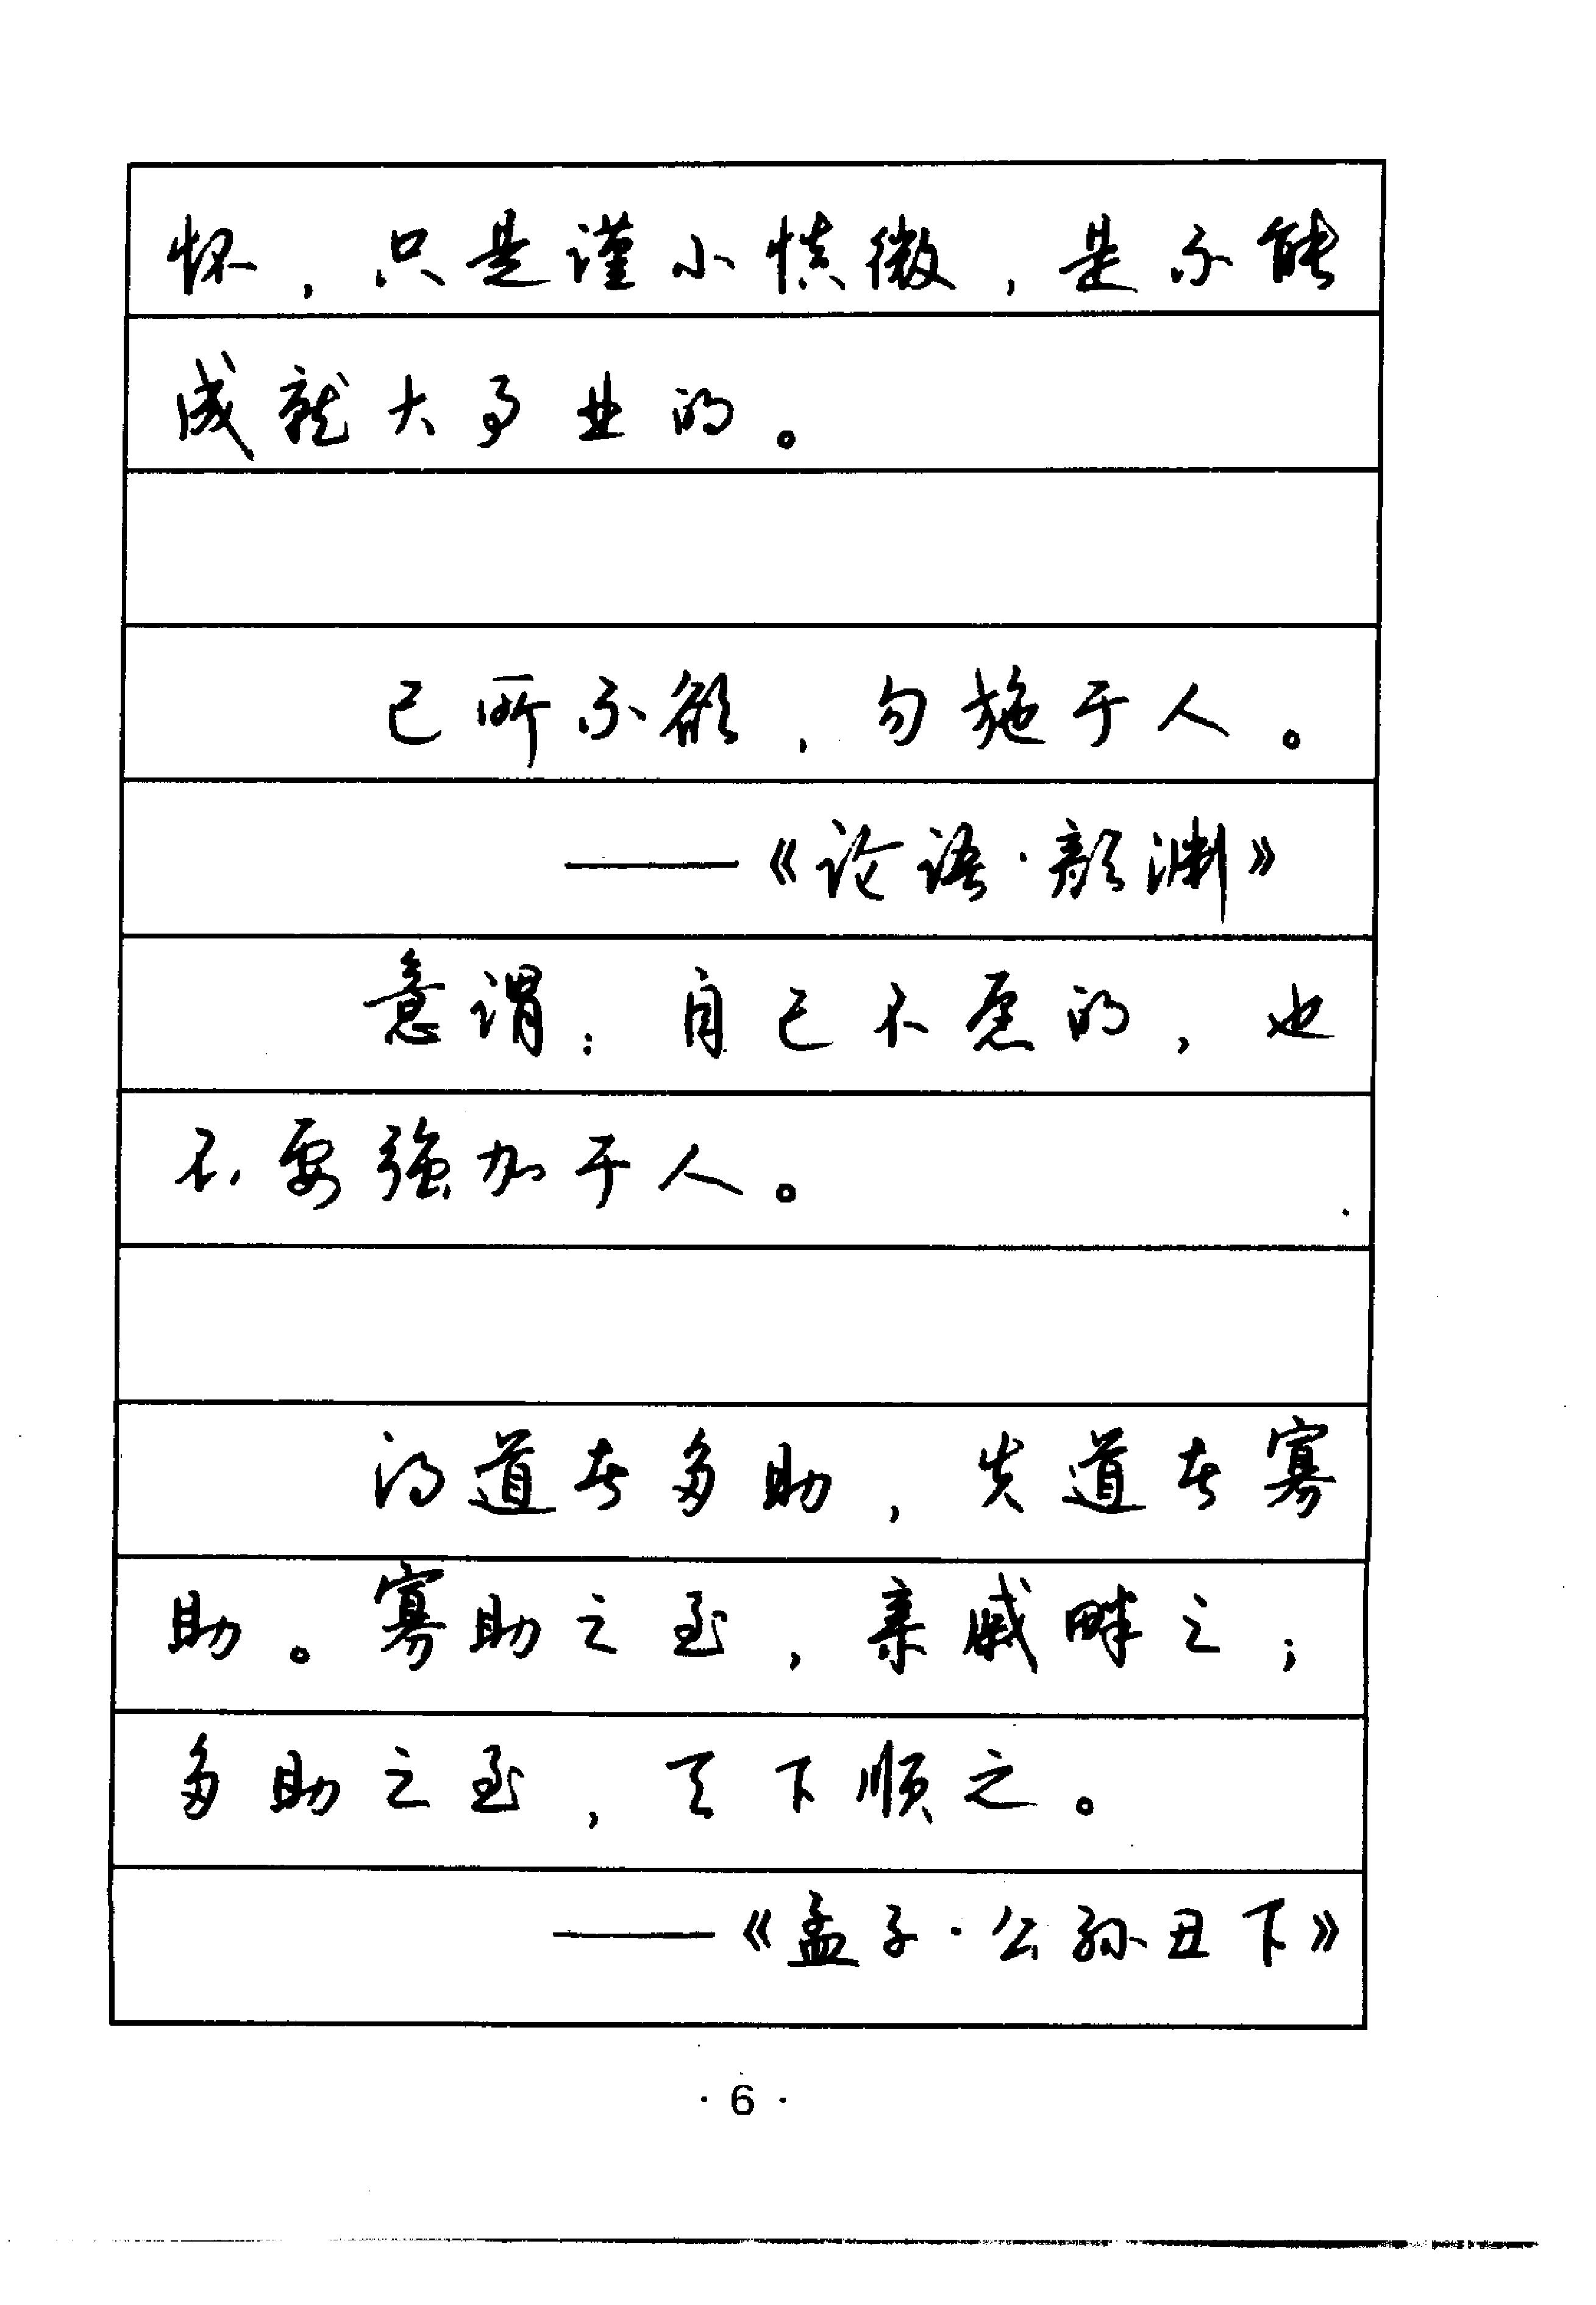 怀，只是谨小慎微，是不能
成就大事业的。
己所不欲，勿施于人。
——《论语·颜渊》
意谓：自己不愿的，也
不要强加于人。
得道者多助，失道者寡
助。寡助之至，亲戚畔之；
多助之至，天下顺之。
——《孟子·公孙丑下》
·6·